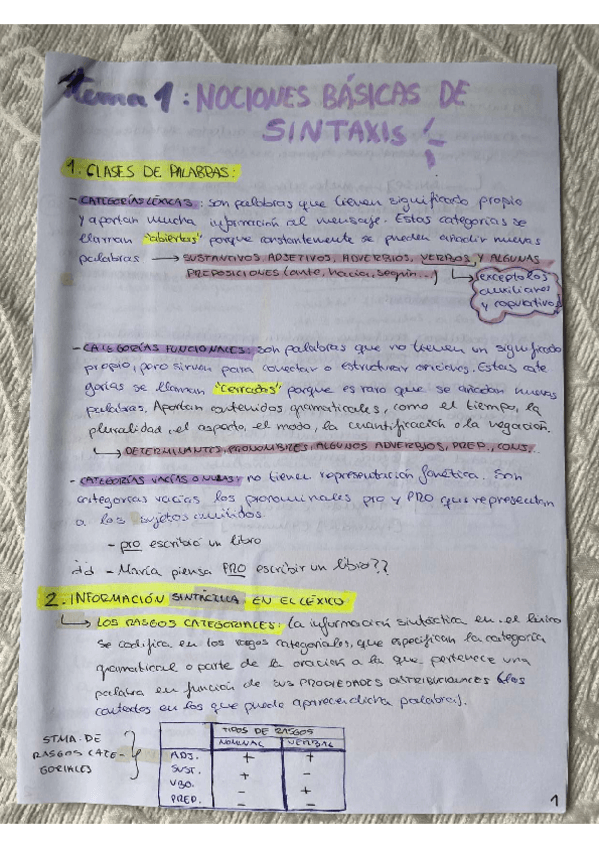 tema 1: NOCIONES BÁSICAS DE
SINTAXIS
1. CLASES DE PALABRAS:
- CATEGORÍAS LÉXICAS: son palabras que tienen significado propio
y aportan mucha información al mensaje. Estas categorías se
llaman "abiertas" porque constantemente se pueden añadir nuevas
palabras → SUSTANTIVOS, ADJETIVOS, ADVERBIOS, VERBOS, Y ALGUNAS
PREPOSICIONES (ante, hacia, según...)
(excepto los
auxiliares
y copulativos)
- CATEGORÍAS FUNCIONALES: son palabras que no tienen un significado
propio, pero sirven para conectar o estructurar oraciones. Estas cate
gorías se llaman "cerradas" porque es raro que se añadan nuevas
palabras. Aportan contenidos gramaticales, como el tiempo, la
pluralidad, el aspecto, el modo, la cuantificación o la negación.
→ DETERMINANTES, PRONOMBRES, ALGUNOS ADVERBIOS, PREP., CONJ...
- CATEGORÍAS VACÍAS O NULAS: no tienen representación fonética. Son
categorías vacías los pronominales pro y PRO que representan
a los sujetos omitidos
- pro escribió un libro
- María piensa PRO escribir un libro??
2. INFORMACIÓN SINTÁCTICA EN EL LÉXICO
→ LOS RASGOS CATEGORIALES: la información sintáctica en el léxico
se codifica en los rasgos categoriales, que especifican la categoría
gramatical o parte de la oración a la que pertenece una
palabra en función de sus PROPIEDADES DISTRIBUCIONALES (los
contextos en los que puede aparecer dicha palabra).
STMA. DE
RASGOS CATE-
GORIALES
TIPOS DE RASGOS
NOMINAL VERBAL
ADJ. + +
SUST. + -
VBO. - +
PREP. - -
1